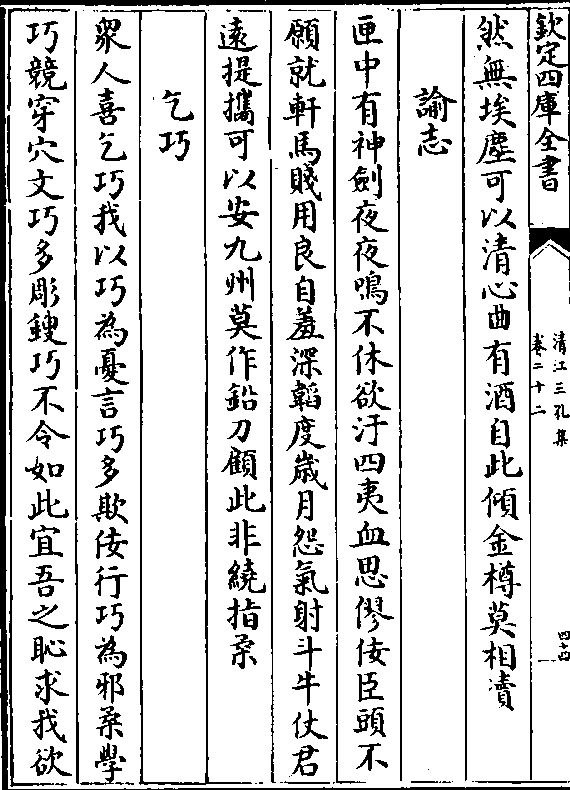 欽定四庫全書
清江三孔集
卷二十二
四十四
然無埃塵可以清心曲有酒自此傾金樽莫相瀆
諭志
匣中有神劍夜夜鳴不休欲汙四夷血思僇佞臣頭不
願就軒馬賤用良自羞深韜度歲月怨氣射斗牛仗君
遠提攜可以安九州莫作鉛刀顧此非繞指柔
乞巧
衆人喜乞巧我以巧為憂言巧多欺佞行巧為邪柔學
巧競穿穴文巧多彫鎪巧不令如此宜吾之恥求我欲